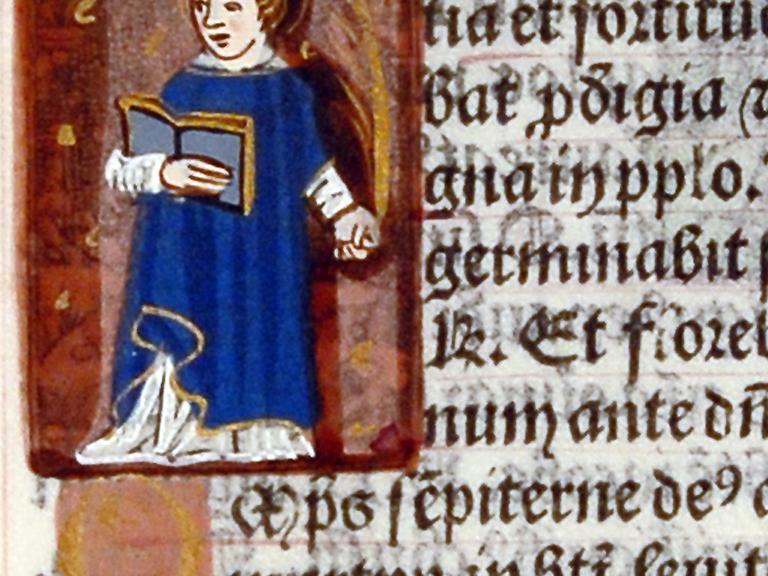 tia et fortitu
bat pdigia
gna in pplo.
germinabit
R. Et flore
num ante dn̄
ps sēpiterne de⁹